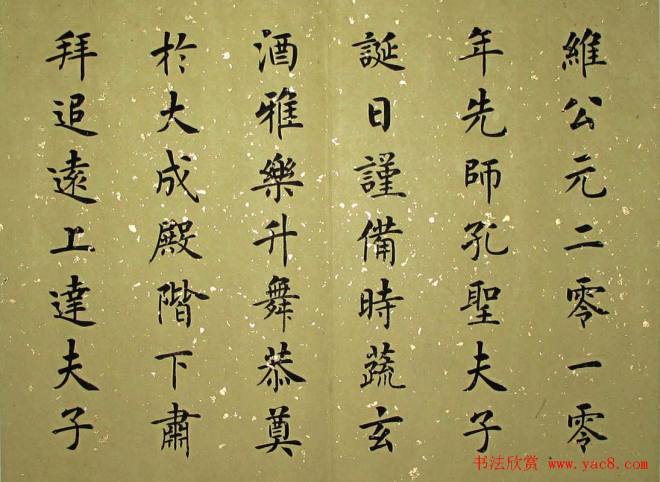 維公元二零一零
年先師孔聖夫子
誕日謹備時蔬玄
酒雅樂升舞恭奠
於大成殿階下肅
拜追遠上達夫子
书法欣赏 www.yac8.com